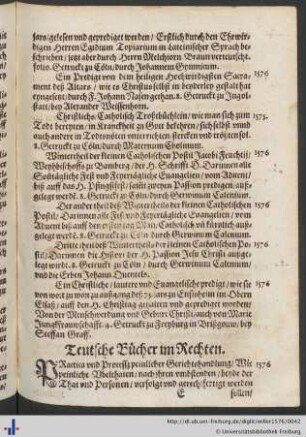 jars/gelesen vnd geprediget werden / Erstlich durch den Ehrwir-
digen Herren Egidium Topiarium in Lateinischer Sprach be-
schrieben / jetzt aber durch Herrn Melchiorn Braun verteutscht.
folio. Getruckt zu Cöln/durch Johannem Gymnicum.
Ein Predigt von dem heiligen Hochwirdigsten Sacra- 1576
ment deß Altars / wie es Christus selbst in beyderley gestalt hat
eyngesetzt/durch F. Johann Nasen gethan. 4. Getruckt zu Ingol-
statt/bey Alexander Weissenhorn.
Christlichs/Catholisch Trostbüchlein/wie man sich zum 1575.
Todt bereyten/in Kranckheit zu Gott bekehren/sich selbst vnnd
auch andere in Todtsnöten vnterrichten/stercken vnd trösten sol.
8. Getruckt zu Cöln/durch Maternum Cholinum.
Wintertheil der kleinen Catholischen Postil Jacobi Feuchtij/ 1576
Weyhbischoffs zu Bamberg / der H. Schrifft D. Darinnen alle
Sontägliche Fest vnd Feyertägliche Euangelien / vom Aduent/
biß auff das H. Pfingstfest/sampt zweyen Passion predigen/auß-
gelegt werden. 8. Getruckt zu Cöln / durch Gerwinum Calenium.
Der ander theil deß Wintertheils der kleinen Catholischen 1576
Postil / Darinnen alle Fest vnd Feyertägliche Euangelien / vom
Aduent biß auff den ersten tag Maij Catholisch vñ fürtrefflich auß-
gelegt werdẽ. 8. Getruckt zu Cöln durch Gerwinum Calenium.
Dritte theil deß Wintertheils der kleinen Catholischen Po- 1576.
stil / Darinnen die Histori der H. Passion Jesu Christi außge-
legt wirdt. 8. Getruckt zu Cöln / durch Gerwinum Calenium/
vnd die Erben Johann Quentels.
Ein Christliche / lautere vnd Euangelische predig / wie sie 1576.
von wort zu wort zu außgang deß 75. jars zu Ensißheim im Obern
Elsaß / auff den H. Christtag gehalten vnd geprediget worden/
Von der Menschwerdung vnd Geburt Christi/auch von Marie
Jungkfrauwschafft. 4. Getruckt zu Freyburg in Brißgauw/ bey
Steffan Graff.
Teutsche Bücher im Rechten.
PRactica vnd Proceß peinlicher Gerichtshandlung / Wie 1576
peinliche Vbelthaten / nach jhren vmbstenden / beyde der
That vnd Personen/verfolgt vnd gerechtfertiget werden
E sollen/
http://dl.ub.uni-freiburg.de/diglit/weller1576/0042
© Universitätsbibliothek Freiburg